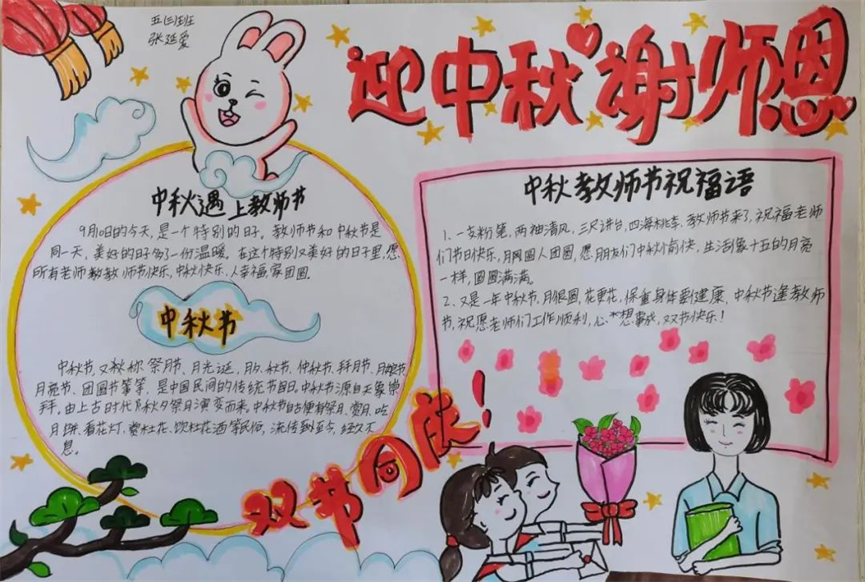 张延爱
迎中秋 谢师恩
中秋遇上教师节
9月10日的今天,是一个特别的日子。教师节和中秋节是
同一天,美好的日子多了一份温暖。在这个特别又美好的日子里,愿
所有老师教师节快乐,中秋快乐,人幸福,家团圆。
中秋节
中秋节,又称祭月节、月光诞、月夕、秋节、仲秋节、拜月节、月娘节、
月亮节、团圆节等等,是中国民间的传统节日。中秋节源自天象崇
拜,由上古时代秋夕祭月演变而来。中秋节自古便有祭月、赏月、吃
月饼、看花灯、赏桂花、饮桂花酒等民俗,流传至今,经久不
息。
双节同庆!
中秋教师节祝福语
1、一支粉笔,两袖清风,三尺讲台,四海桃李,教师节来了,祝福老师
们节日快乐,月圆人团圆,愿朋友们中秋愉快,生活像十五的月亮
一样,圆圆满满。
2、又是一年中秋节,月很圆,花更花,保重身体要健康,中秋节逢教师
节,祝愿老师们工作顺利,心想事成,双节快乐!